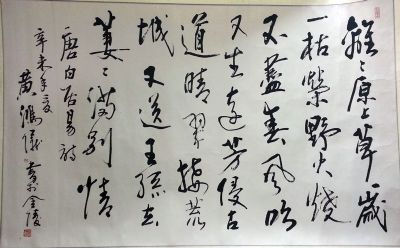 離〻原上草一歲
一枯榮野火燒
不盡春風吹
又生遠芳侵古
道晴翠接荒
城又送王孫去
萋〻滿別情
唐白居易詩
辛未年夏
黃鴻儀書於金陵